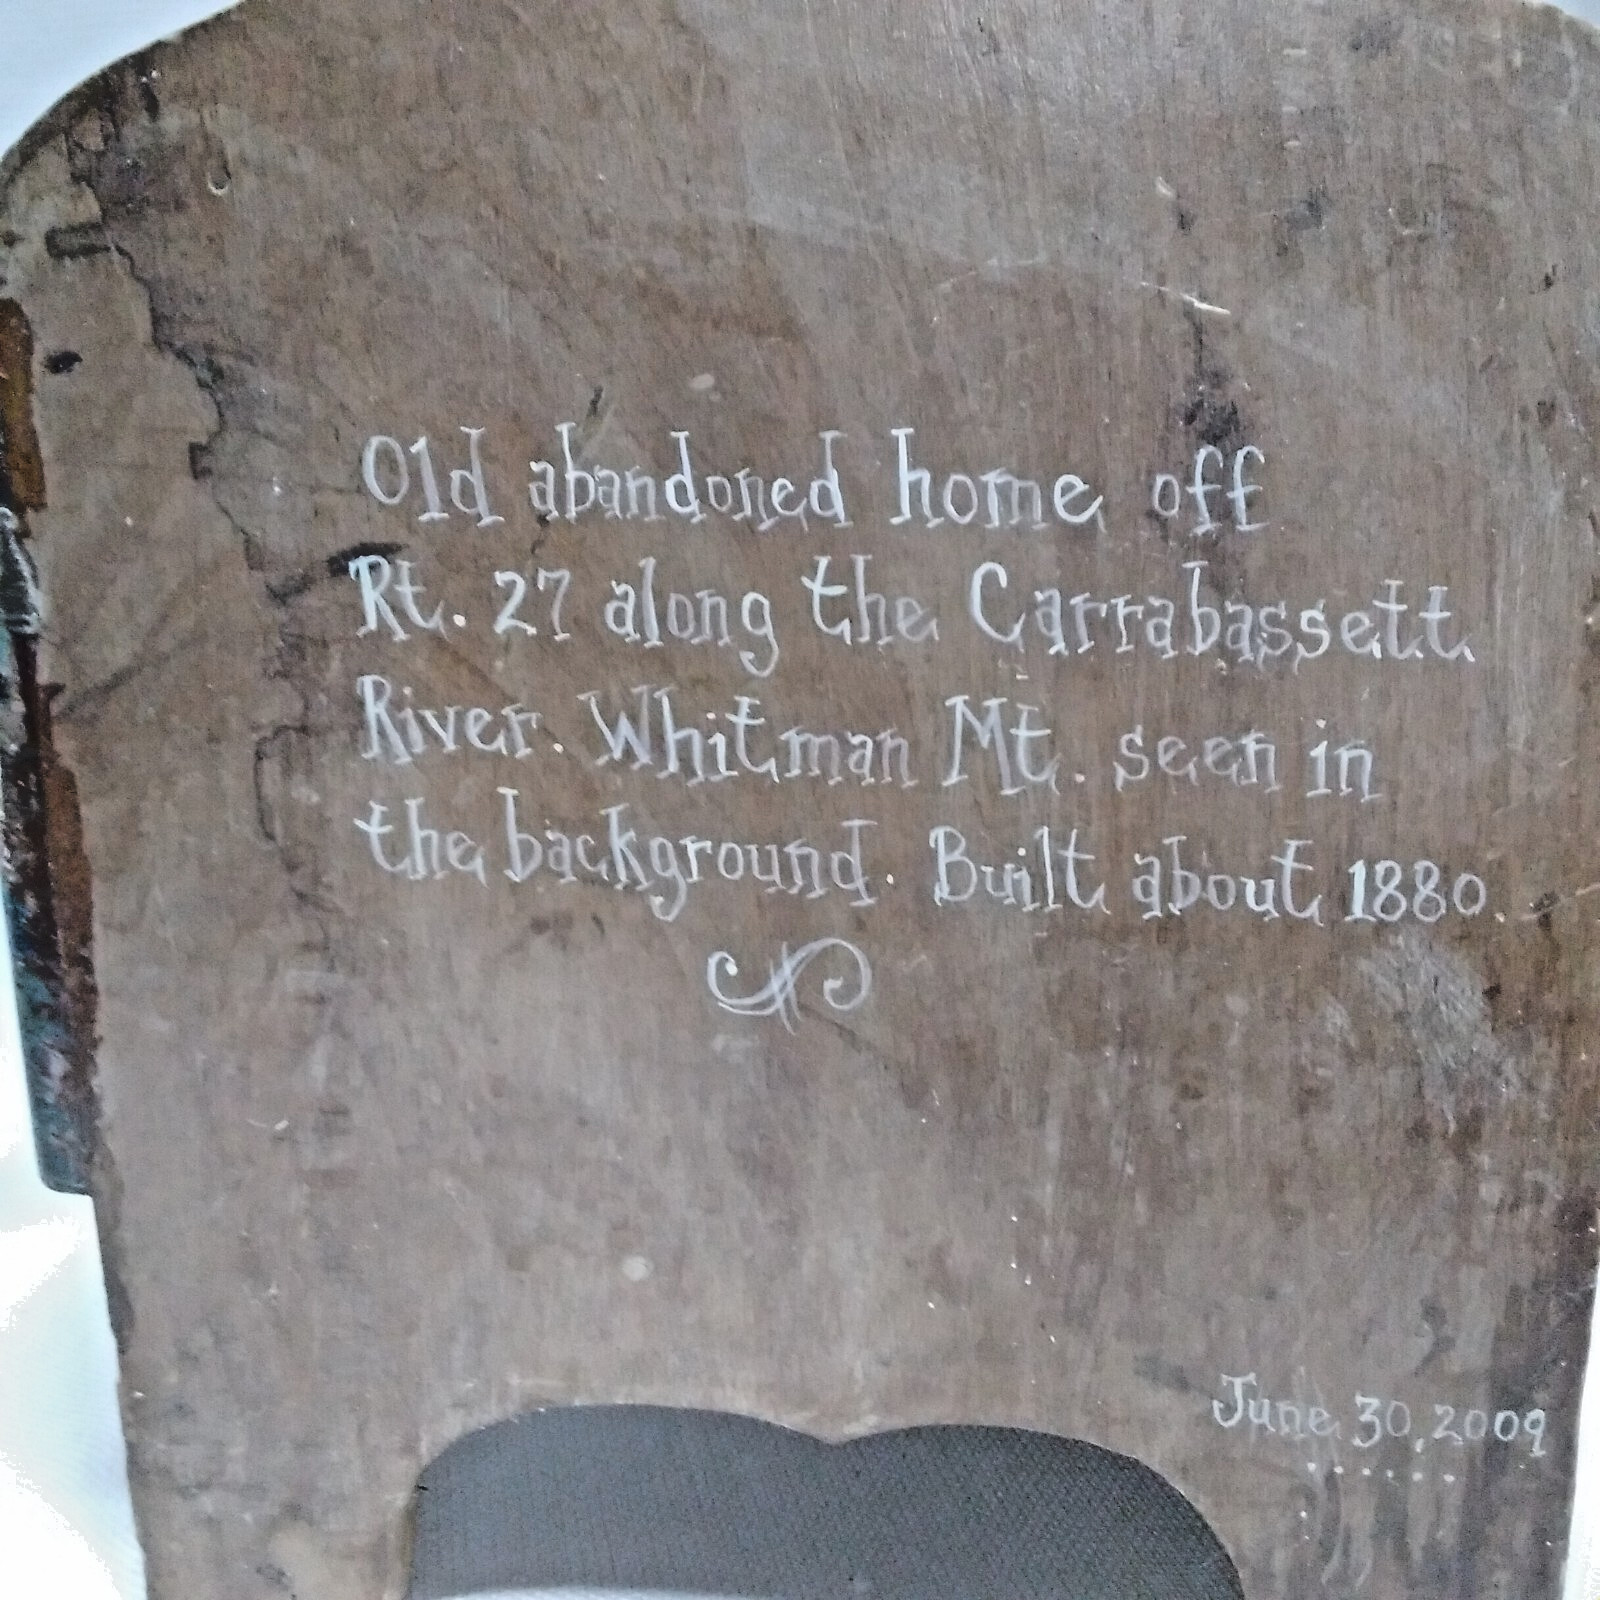 Old abandoned home off
Rt. 27 along the Carrabassett
River. Whitman Mt. seen in
the background. Built about 1880.
June 30, 2009